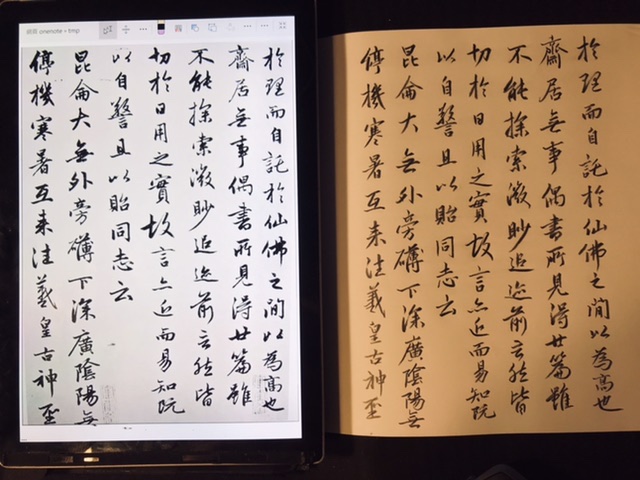 onenote • tmp
於理而自託於仙佛之間以為高也
齋居無事偶書所見得廿篇雖
不能探索微眇追迹前言然皆
切於日用之實故言亦近而易知既
以自警且以貽同志云
昆侖大無外旁礴下深廣陰陽無
停機寒暑互来往羲皇古神聖
於理而自託於仙佛之間以為高也
齋居無事偶書所見得廿篇雖
不能探索微眇追迹前言然皆
切於日用之實故言亦近而易知既
以自警且以貽同志云
昆侖大無外旁礴下深廣陰陽無
停機寒暑互来往羲皇古神聖